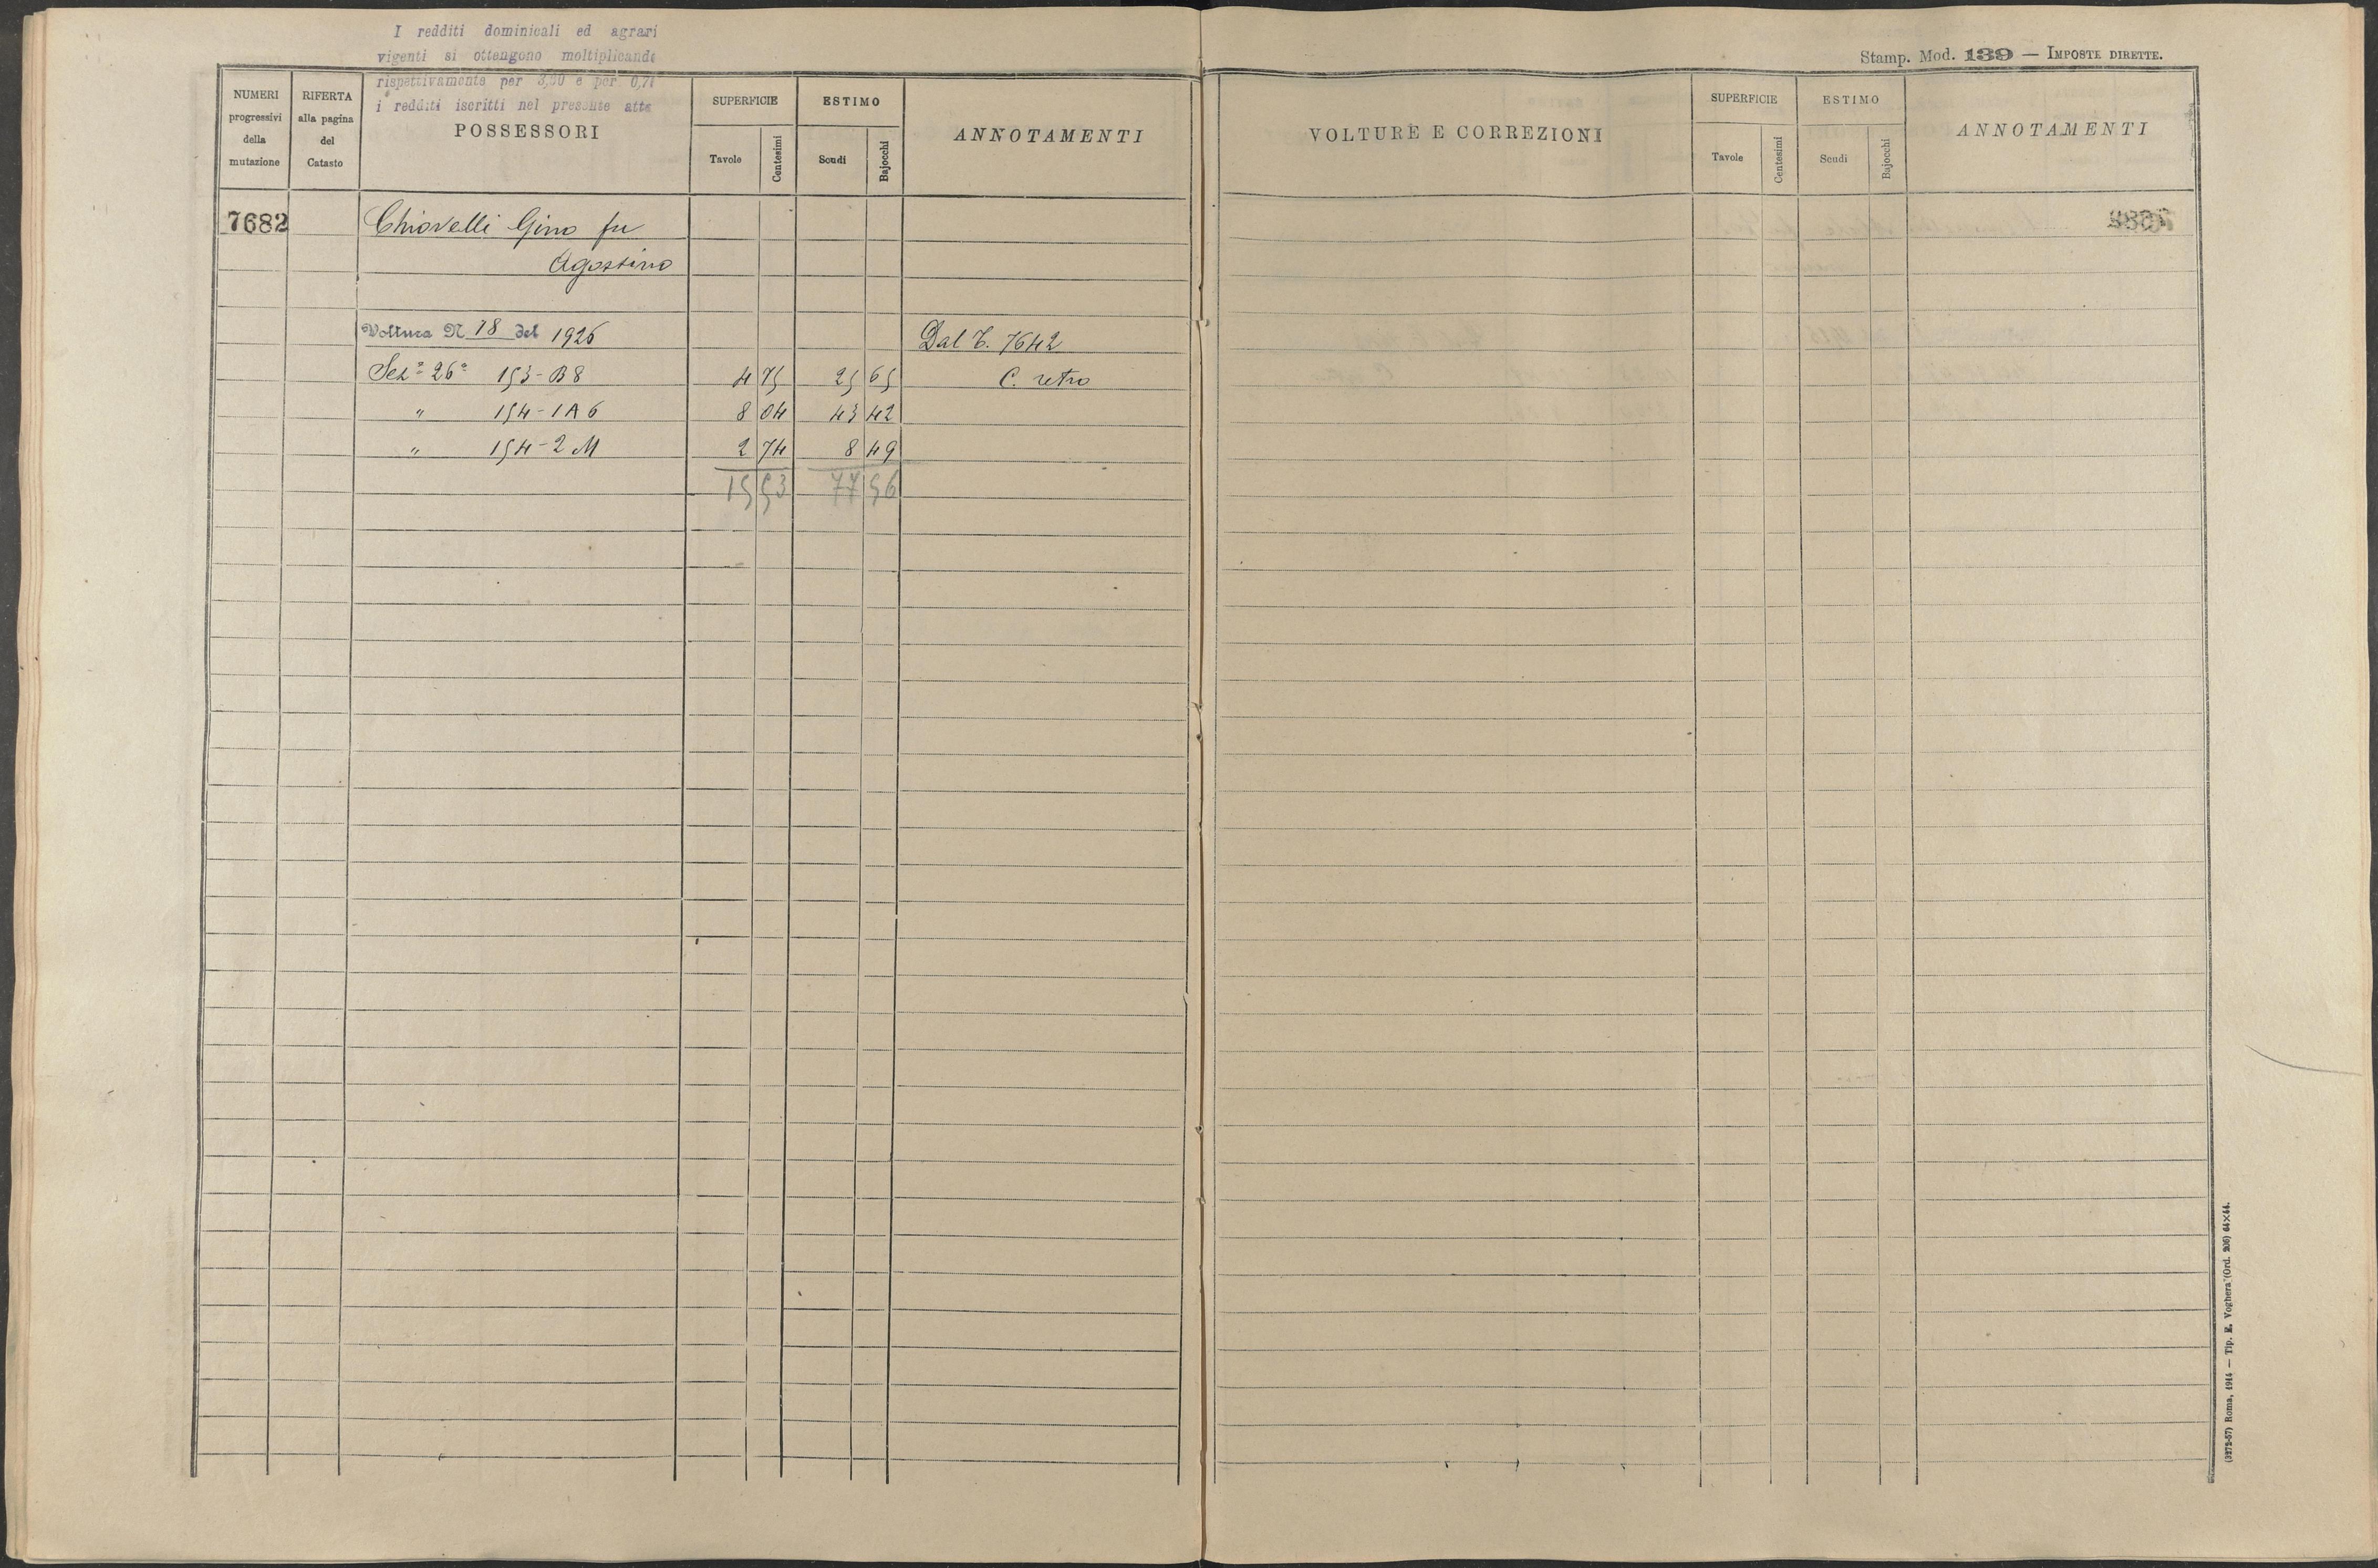 I redditi dominicali ed agrari
vigenti si ottengono moltiplicando
rispettivamente per 3,50 e per 0,7
i redditi iscritti nel presente atto
Stamp. Mod. 139 — IMPOSTE DIRETTE.
NUMERI progressivi della mutazione
RIFERTA alla pagina del Catasto
POSSESSORI
SUPERFICIE Tavole Centesimi
ESTIMO Scudi Bajocchi
ANNOTAMENTI
VOLTURE E CORREZIONI
SUPERFICIE Tavole Centesimi
ESTIMO Scudi Bajocchi
ANNOTAMENTI
7682 Chiovelli Gino fu
Agostino
Voltura N 78 del 1926 Dal T. 7642
Sez.e 26a 153-B8 4 75 25 65 C. retro
" 154-1A6 8 04 43 42
" 154-2 M 2 74 8 49
15 53 77 56
(3272-57) Roma, 1914 — Tip. E. Voghera (Ord. 206) 64×44.